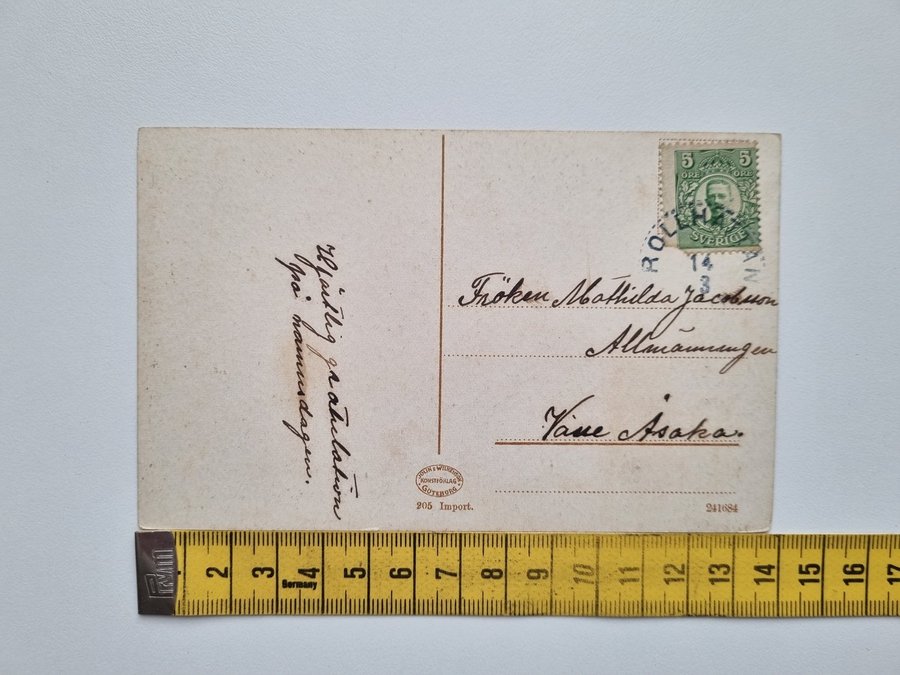 Hjärtlig gratulation
på namnsdagen.
5 5
ÖRE ÖRE
SVERIGE
14
3
Fröken Mathilda Jacobsson
Allmänningen
Väne Åsaka.
KONSTFÖRLAG
GÖTEBORG
205 Import.
241684
2 3 4 5 6 7 8 9 10 11 12 13 14 15 16 17
Germany